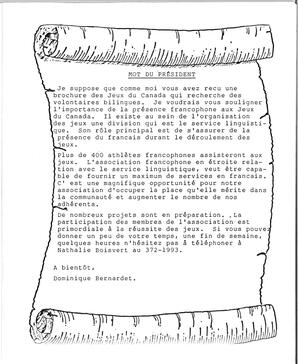 MOT DU PRÉSIDENT
Je suppose que comme moi vous avez reçu une
brochure des Jeux du Canada qui recherche des
volontaires bilingues. Je voudrais vous souligner
l'importance de la présence francophone aux Jeux
du Canada. Il existe au sein de l'organisation
des jeux une division qui est le service linguisti-
que. Son rôle principal est de s'assurer de la
présence du francais durant le déroulement des
jeux.
Plus de 400 athlètes francophones assisteront aux
jeux. L'association francophone en étroite rela-
tion avec le service linguistique, veut être capa-
ble de fournir un maximum de services en francais.
C' est une magnifique opportunité pour notre
association d'occuper la place qu'elle mérite dans
la communauté et augmenter le nombre de nos
adhérents.
De nombreux projets sont en préparation. La
participation des membres de l'association est
primordiale à la réussite des jeux. Si vous pouvez
donner un peu de votre temps, une fin de semaine,
quelques heures n'hésitez pas à téléphoner à
Nathalie Boisvert au 372-1993.
A bientôt,
Dominique Bernardet.